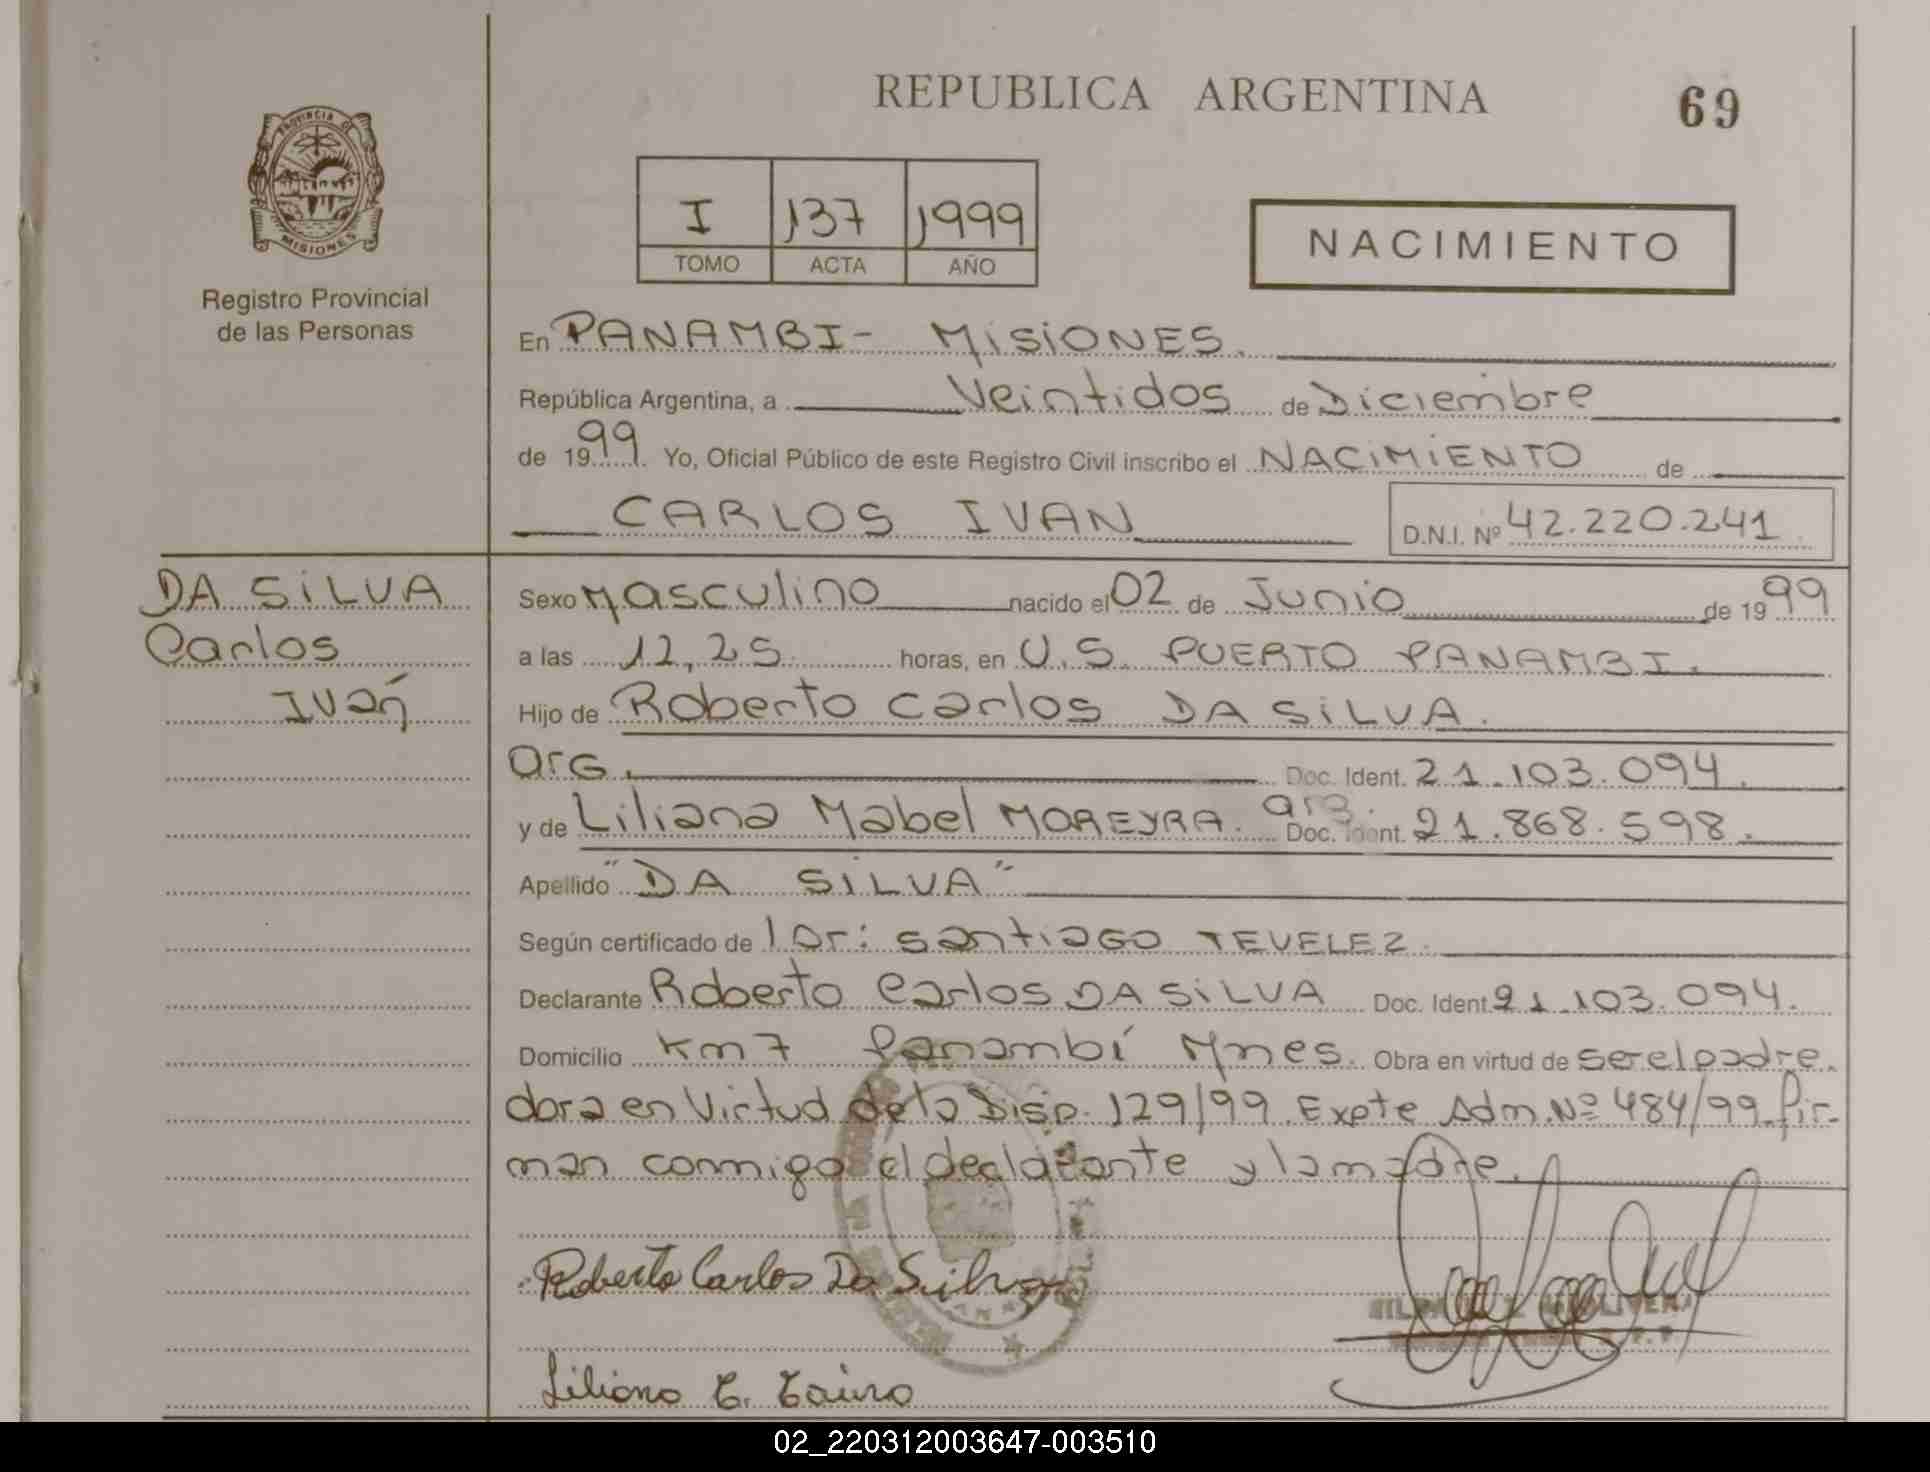 REPUBLICA ARGENTINA
69
PROVINCIA DE
MISIONES
Registro Provincial
de las Personas
I 137 1999
TOMO ACTA AÑO
NACIMIENTO
En PANAMBI- MISIONES.
República Argentina, a Veintidos de Diciembre
de 1999 Yo, Oficial Público de este Registro Civil inscribo el NACIMIENTO de
CARLOS IVAN
D.N.I. Nº 42.220.241
DA SILVA
Carlos
Iván
Sexo Masculino nacido el 02 de Junio de 1999
a las 12,25 horas, en U.S. PUERTO PANAMBI.
Hijo de Roberto Carlos DA SILVA.
arg. Doc. Ident. 21.103.094.
y de Liliana Mabel MOREYRA. arg. Doc. Ident. 21.868.598.
Apellido "DA SILVA"
Según certificado de Santiago TEVELEZ.
Declarante Roberto Carlos DA SILVA Doc. Ident. 21.103.094.
Domicilio Km 7 Panambí Mnes. Obra en virtud de ser el padre.
dora en Virtud de la Disp. 129/99. Expte Adm. Nº 484/99 fir-
man conmigo el declarante y la madre.
Roberto Carlos Da Silva
Liliana
02_220312003647-003510